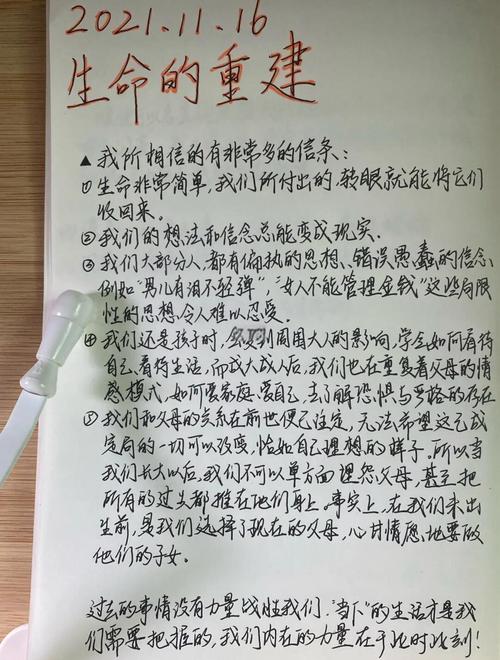 2021.11.16
生命的重建
▲我所相信的有非常多的信条:
①生命非常简单,我们所付出的,转眼就能将它们
收回来。
②我们的想法和信念总能变成现实.
③我们大部分人,都有偏执的思想、错误愚蠢的信念,
例如"男儿有泪不轻弹","女人不能管理金钱"这些局限
性的思想,令人难以忍受。
④我们还是孩子时,受到周围大人的影响,学会如何看待
自己、看待生活,而成大成人后,我们也在重复着父母的情
感模式,如何受家庭 自己,去了解恐惧与严格的存在
⑤我们和父母的关系在前世便已注定,无法希望这已成
定局的一切可以改变,恰如自己理想的样子。所以当
我们长大以后,我们不可以单方面埋怨父母,甚至把
所有的过失都推在他们身上。事实上,在我们未出
生前,是我们选择了现在的父母,心甘情愿地要做
他们的子女。
过去的事情没有力量战胜我们."当下"的生活才是我
们需要把握的,我们内在的力量在于此时此刻!